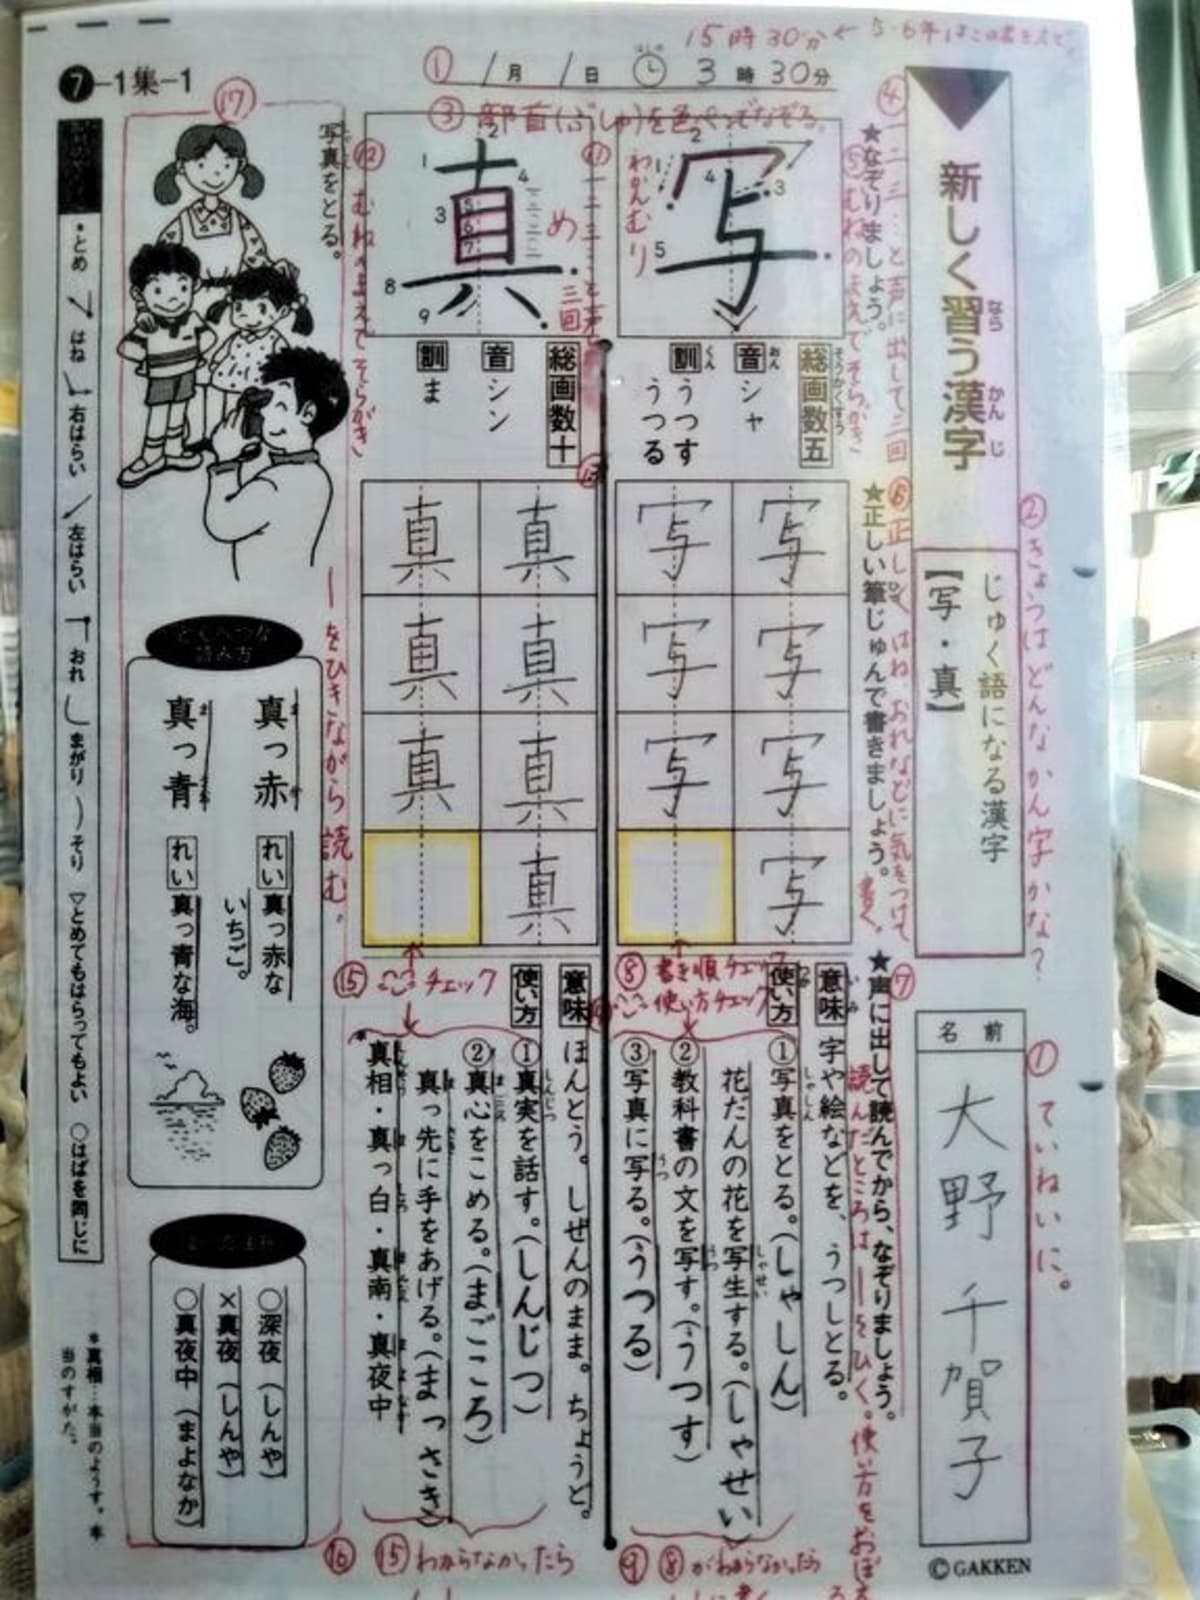 15時30分← 5・6年はこの書き方で。
① 1月1日 3時30分
7-1集-1
新しく習う漢字
なら
かんじ
じゅく語になる漢字
【写・真】
② きょうはどんなかん字かな?
名前
大野 千賀子
① ていねいに。
©GAKKEN
④ 一二三…と声に出して三回
★なぞりましょう。
⑤ むねのまえでそらがき
③ 部首(ぶしゅ)を色ペンでなぞる。
写
1
2
3
4
5
わかんむり
総画数五
そうかくすう
音 シャ
おん
訓 うつす
くん
うつる
⑥ 正しく はね、おれなどに気をつけて書く。
★正しい筆じゅんで書きましょう。
写 写 写 写
写 写 写
⑧ 書き順チェック
使い方チェック
⑰
★声に出して読んでから、なぞりましょう。
読んだところは―をひく。使い方をおぼ
意味 字や絵などを、うつしとる。
使い方 ①写真をとる。(しゃしん)
花だんの花を写生する。(しゃせい)
②教科書の文を写す。(うつす)
③写真に写る。(うつる)
⑨ ⑧がわからなかったら
真
1
2
3
4
5
6
7
8
9
め
三回
⑫ むねのまえでそらがき
総画数十
音 シン
訓 ま
⑬
真 真 真 真
真 真 真
⑮ ここチェック
意味 ほんとう。しぜんのまま。ちょうど。
使い方 ①真実を話す。(しんじつ)
②真心をこめる。(まごころ)
真っ先に手をあげる。(まっさき)
*真相・真っ白・真南・真夜中
⑯ ⑮わからなかったら
⑰
写真をとる。
―をひきながら読む。
とくべつな読み方
真っ赤
れい 真っ赤ないちご。
真っ青
れい 真っ青な海。
○深夜(しんや)
×真夜(しんや)
○真夜中(まよなか)
・とめ はね 右はらい 左はらい おれ まがり そり ▽とめてもはらってもよい ○はばを同じに
*真相…本当のようす。本
当のすがた。